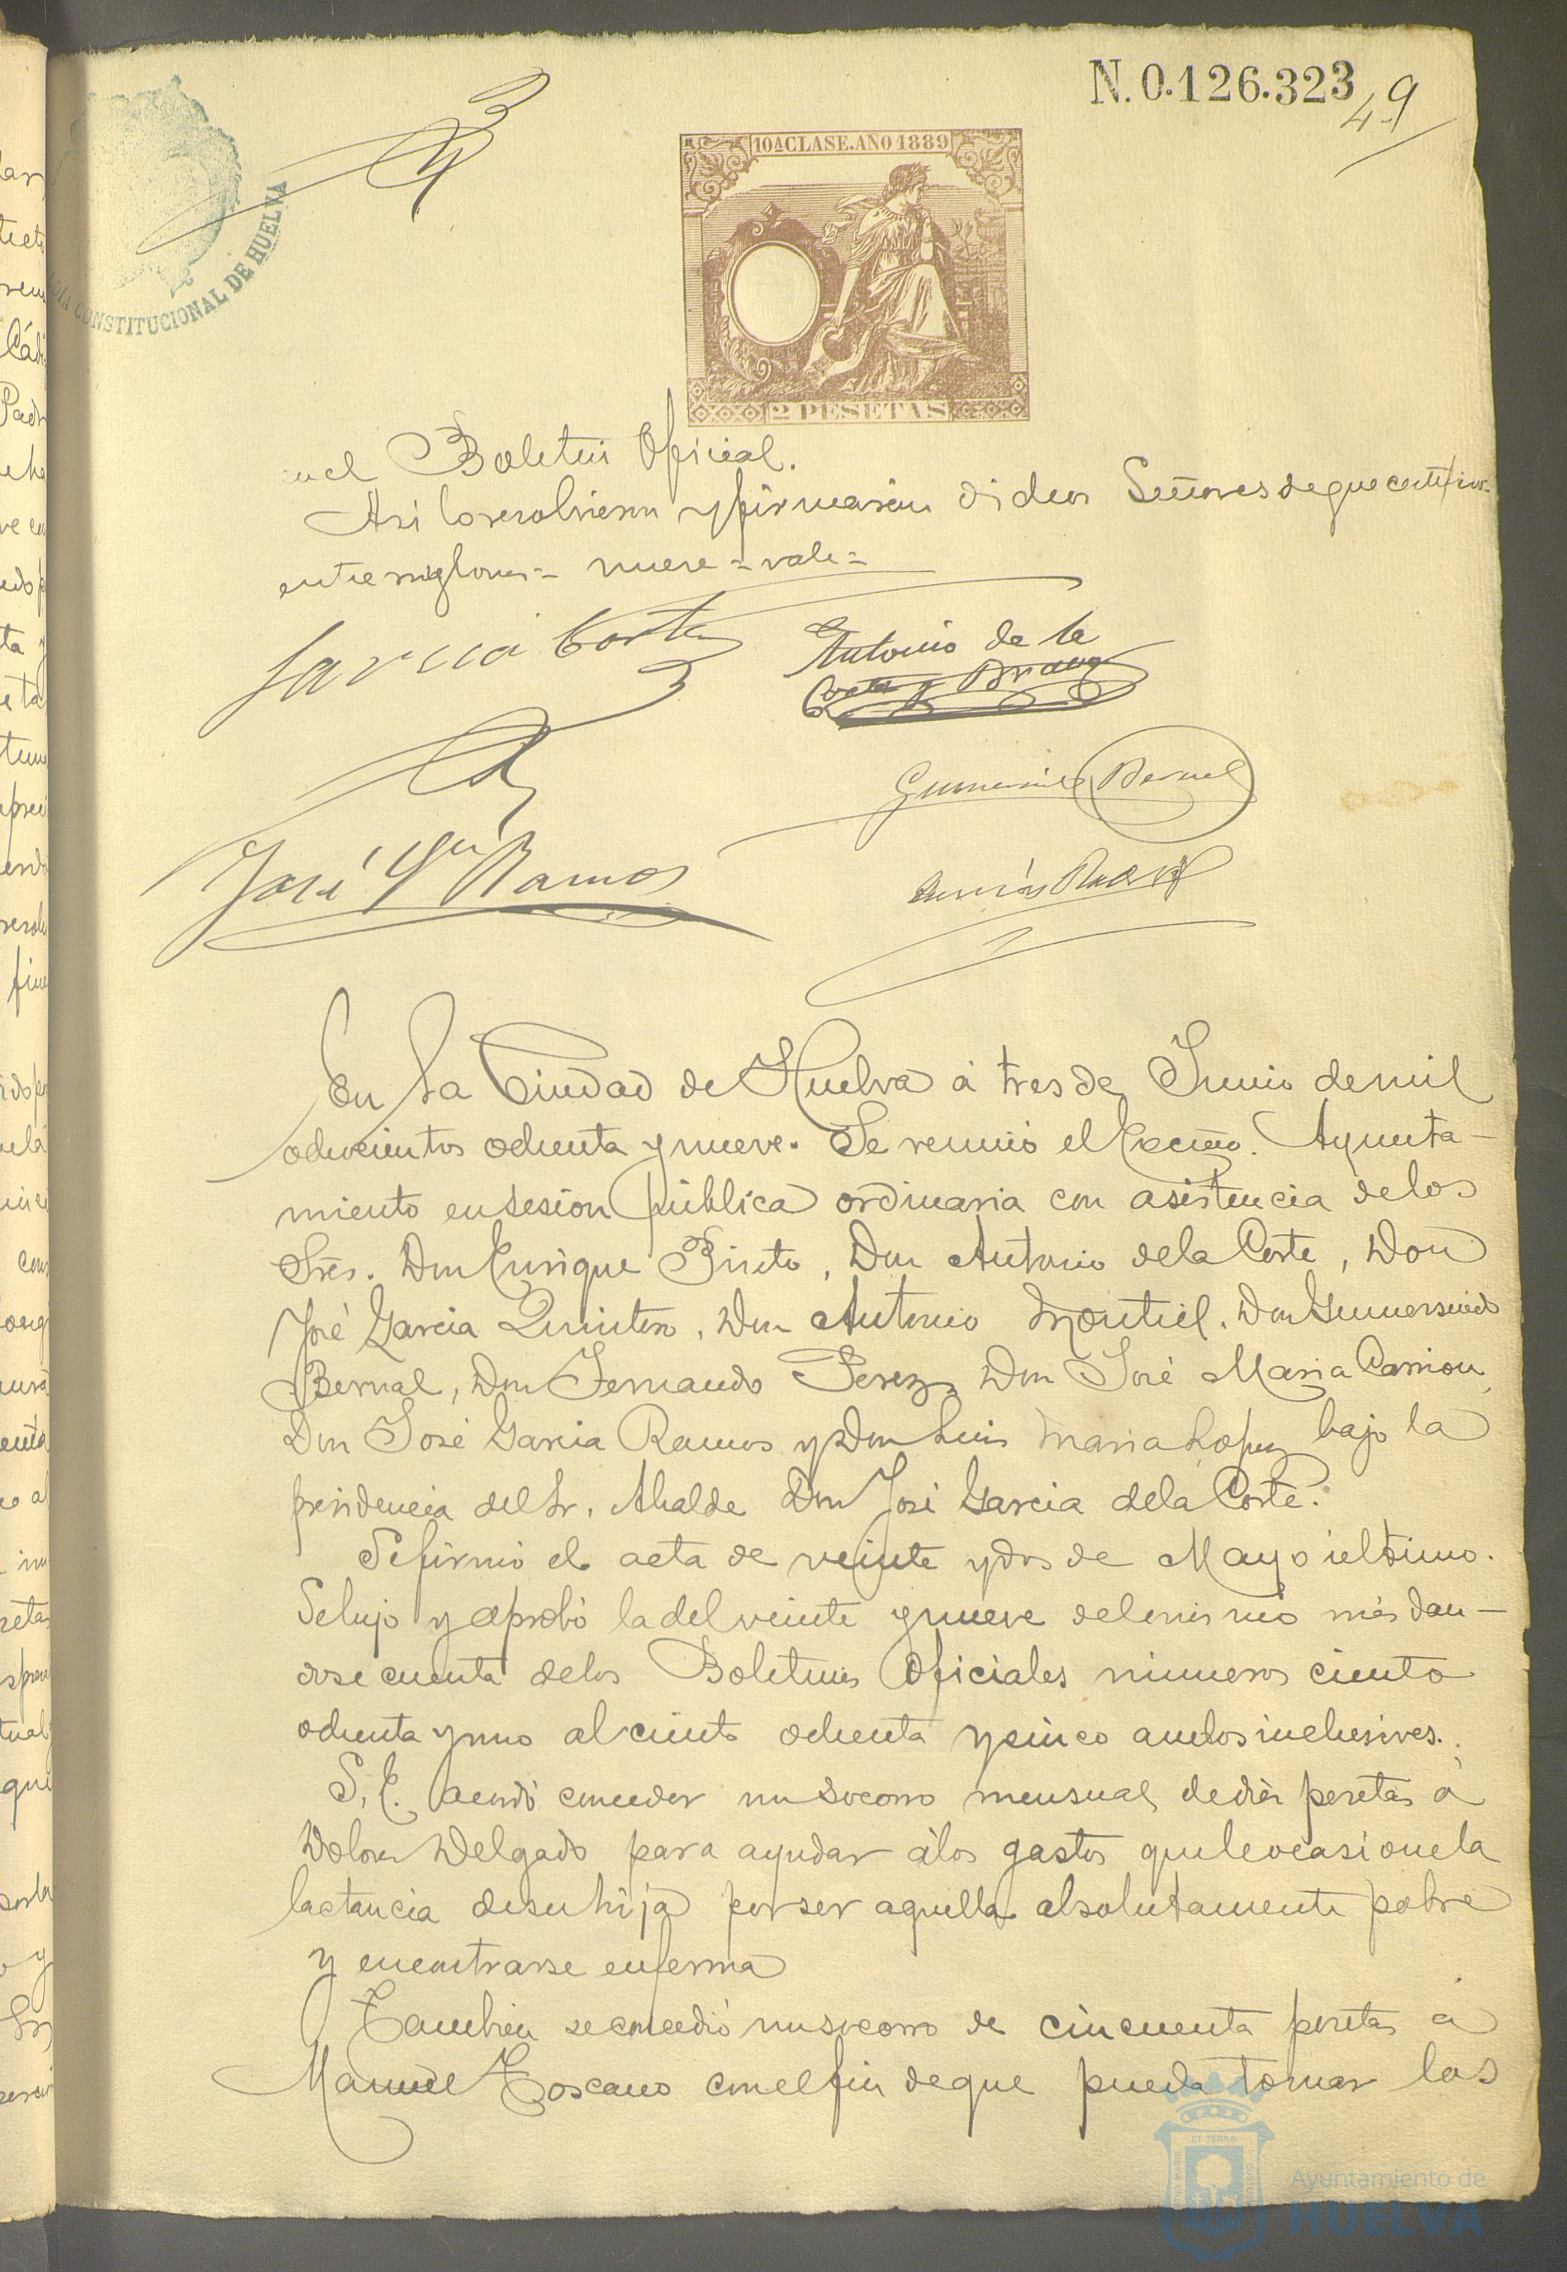 N. 0.126.323
49
10ª CLASE. AÑO 1889
2 PESETAS
CONSTITUCIONAL DE HUELVA
en el Boletin Oficial.
Asi lo resolvieron y firmarán dichos Señores de que certifico-
entre renglones = nueve = vale =
Garcia Corte
Antonio de la
Corte y
Gumersindo Bernal
José Gª Ramos
En la Ciudad de Huelva á tres de Junio de mil
ochocientos ochenta y nueve. Se reunió el Excmo. Ayunta-
miento en sesion pública ordinaria con asistencia de los
Sres. Don Enrique Pinto, Don Antonio de la Corte, Don
José Garcia Quintero, Don Antonio Montiel, Don Gumersindo
Bernal, Don Fernando Perez, Don José Maria Carrion,
Don José Garcia Ramos y Don Luis Maria Lopez bajo la
presidencia del Sr. Alcalde Don José Garcia de la Corte.
Se firmó el acta de veinte y dos de Mayo último.
Se leyó y aprobó la del veinte y nueve del mismo més dan-
dose cuenta de los Boletines Oficiales números ciento
ochenta y uno al ciento ochenta y cinco ambos inclusives.
S. E. acordó conceder un socorro mensual de diéz pesetas á
Dolores Delgado para ayudar á los gastos que le ocasione la
lactancia de su hija por ser aquella absolutamente pobre
y encontrarse enferma
Tambien se concedió un socorro de cincuenta pesetas á
Manuel Toscano con el fin de que pueda tomar los
Ayuntamiento de
HUELVA